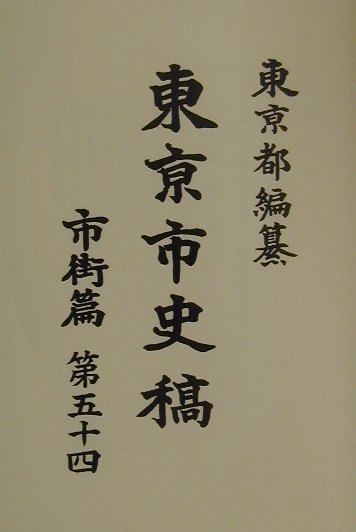 東京都編纂
東京市史稿
市街篇 第五十四